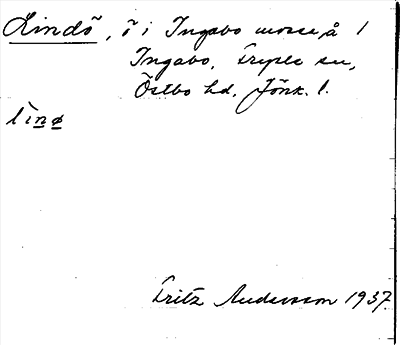 Lindö, ö i Ingabo mosse, å 1
Ingabo, Tryple sn,
Östbo hd. Jönk. l.
lìnø
Fritz Andersson 1937